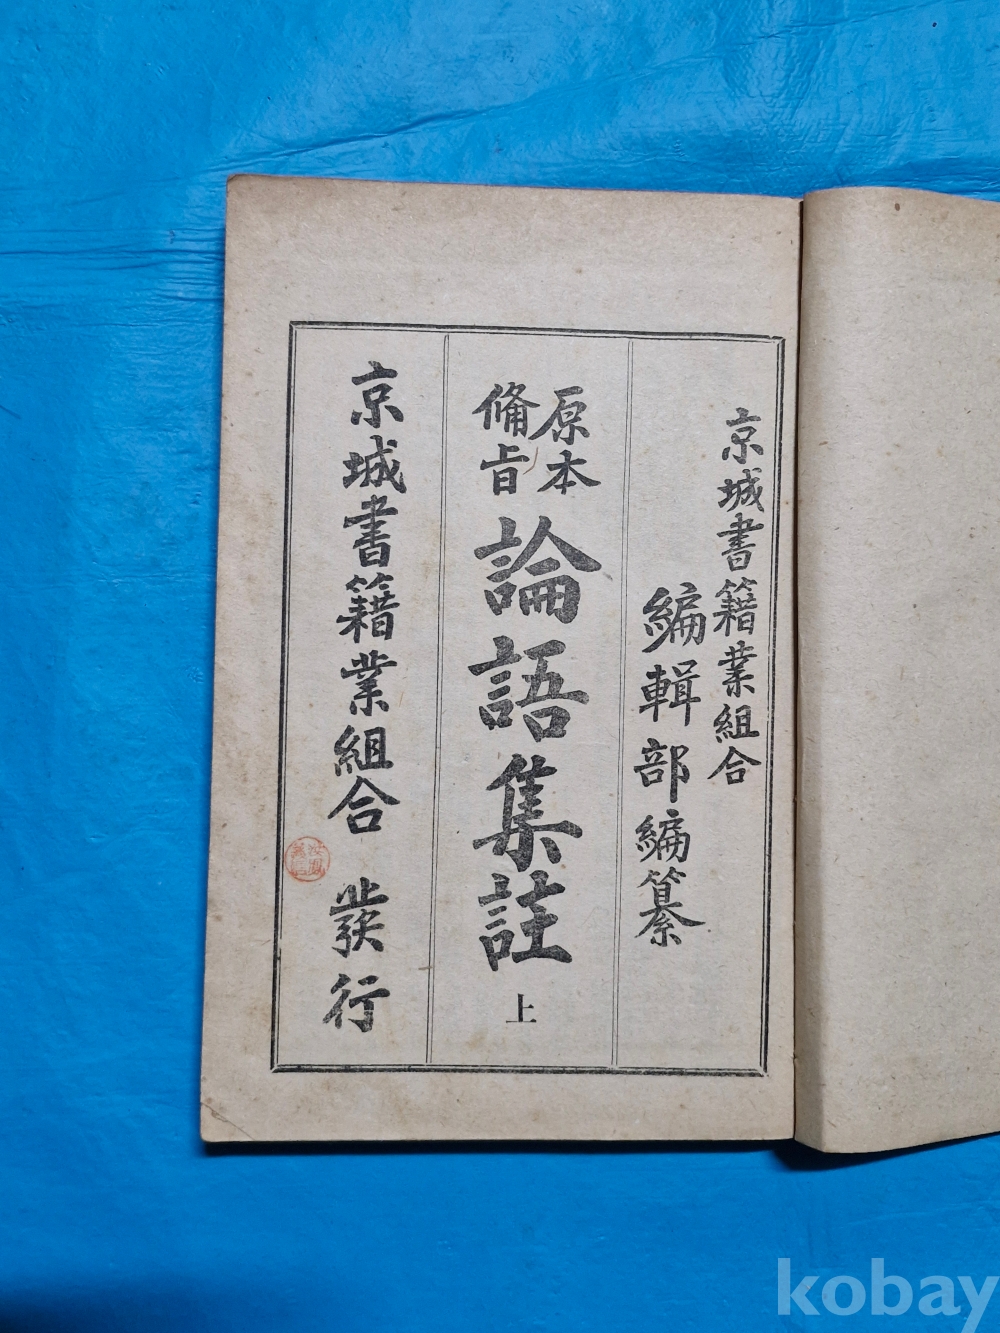 京城書籍業組合
編輯部編纂
原本
備旨
論語集註 上
京城書籍業組合 發行
kobay